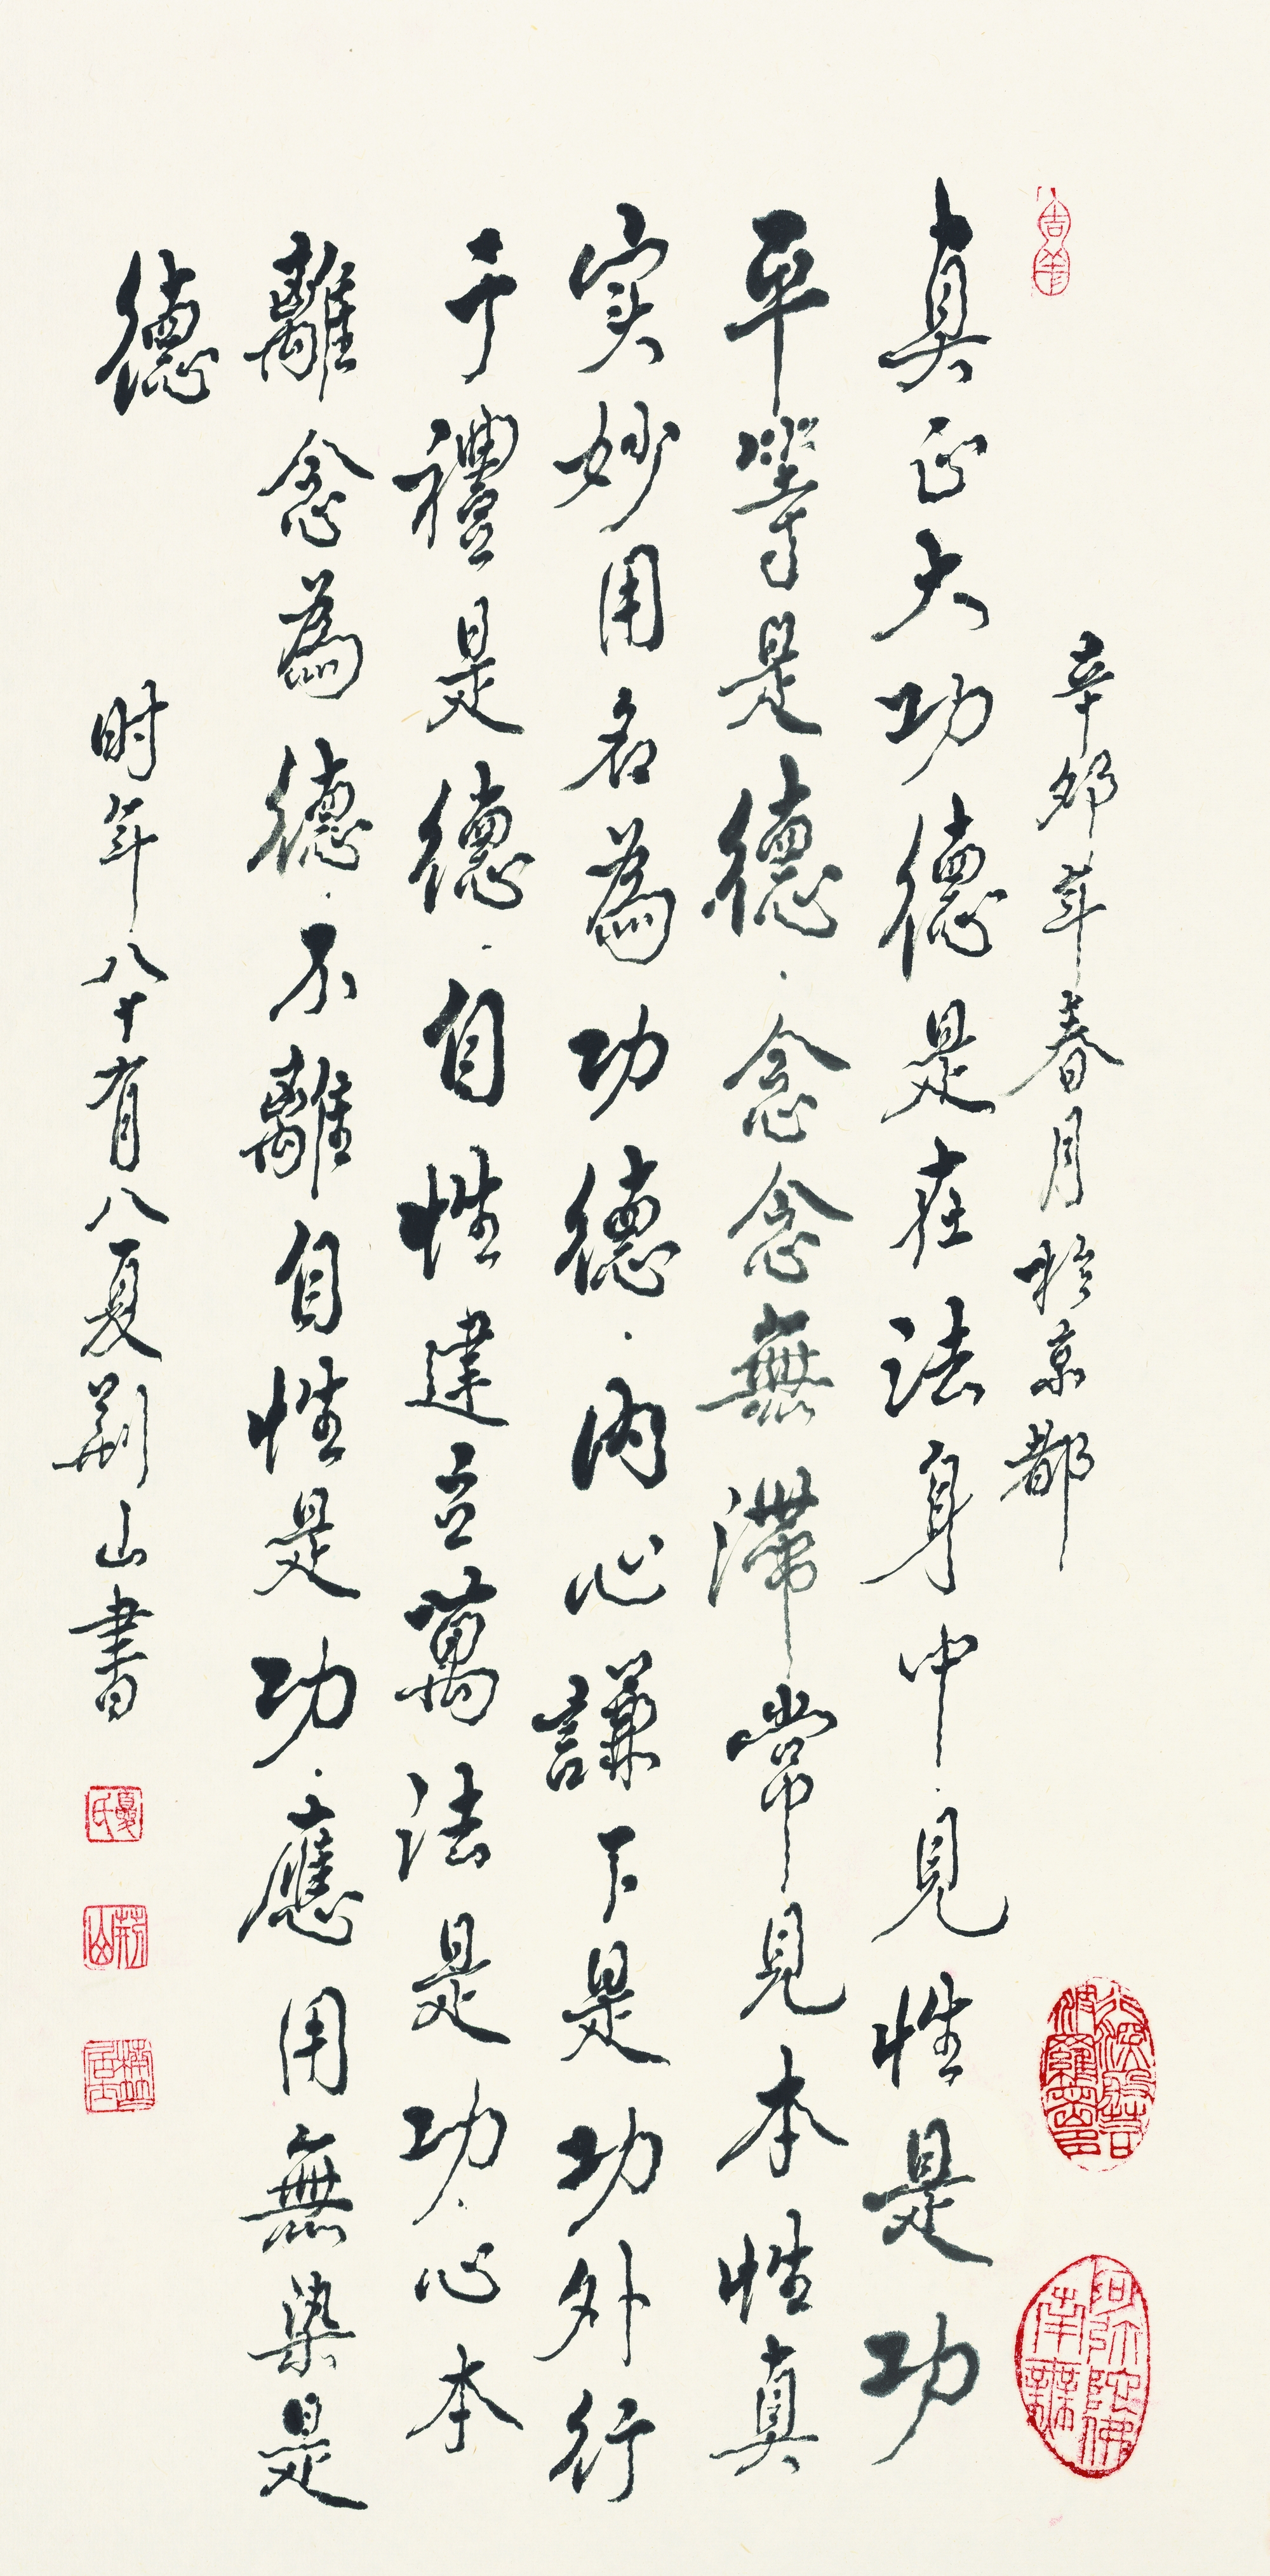 辛卯年春月於京都
真正大功德是在法身中.見性是功
平等是德.念念無滯常見本性真
实妙用名為功德.内心謙下是功外行
于禮是德.自性建立萬法是功.心本
離念為德.不離自性是功.應用無染是
德
时年八十有八夏荆山書
夏氏
荆山